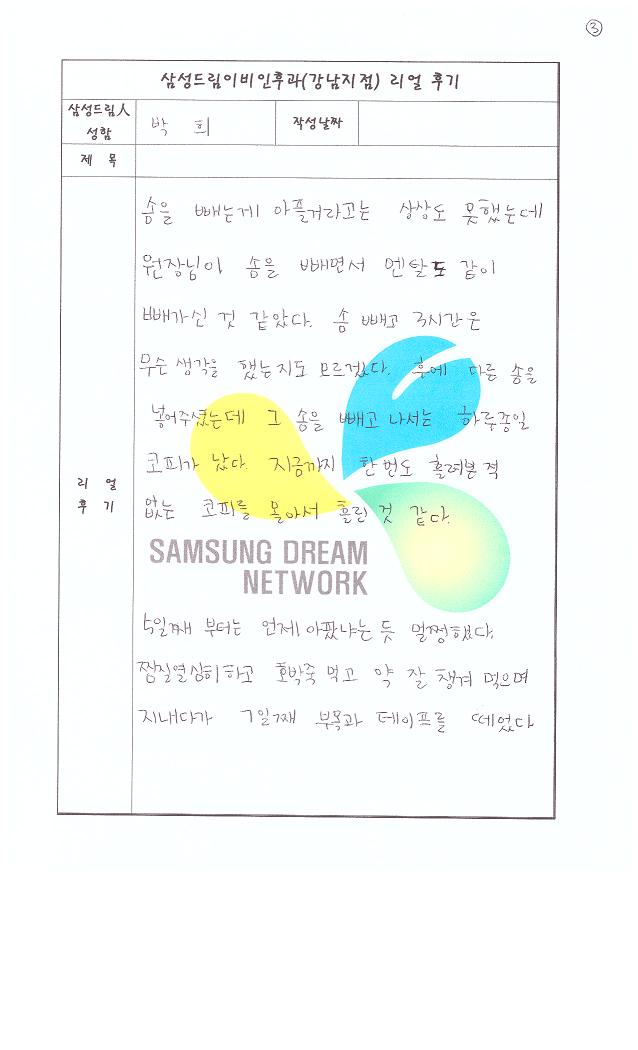 ③
삼성드림이비인후과(강남지점) 리얼 후기
삼성드림人 성함
박 희
작성날짜
제 목
리 얼 후 기
솜을 빼는게 아플거라고는 상상도 못했는데
원장님이 솜을 빼면서 멘탈도 같이
빼가신 것 같았다. 솜 빼고 3시간은
무슨 생각을 했는지도 모르겠다. 후에 다른 솜을
넣어주셨는데 그 솜을 빼고 나서는 하루종일
코피가 났다. 지금까지 한번도 흘려본 적
없는 코피를 몰아서 흘린 것 같다.
SAMSUNG DREAM
NETWORK
5일째 부터는 언제 아팠냐는 듯 멀쩡했다.
찜질열심히하고 호박죽 먹고 약 잘 챙겨 먹으며
지내다가 7일째 부목과 테이프를 떼었다